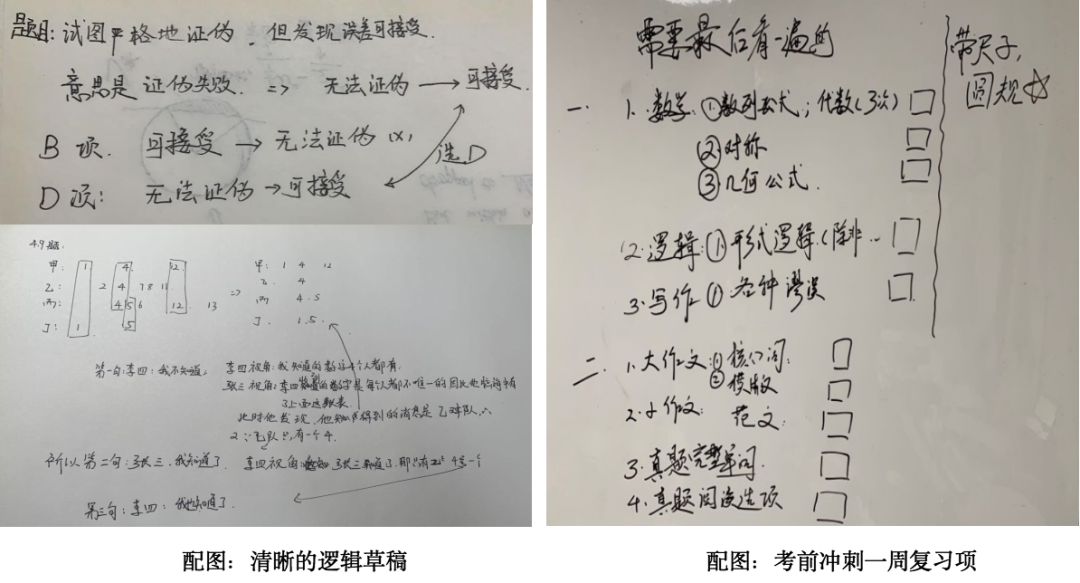 题目: 试图严格地证伪, 但发现误差可接受.
意思是 证伪失败. => 无法证伪 → 可接受.
B 项. 可接受 → 无法证伪 (x)
选D
D 项: 无法证伪 → 可接受
49题.
甲: 1 4 12
乙: 2 4 7 8 11
丙: 4 5 6 12 13
丁: 1 5
=>
甲: 1 4 12
乙 4
丙 4.5
丁 1.5.
第一句:李四:我不知道。
李四视角:我知道的数字每个人都有.
张三视角:李四知道的数字是每个人都不唯一的因此
此时他发现, 他
2
所以第二句:张三:我知道了.
李四视角 张三知道了.
第三句:李四:我也知道了.
配图:清晰的逻辑草稿
需要最后看一遍的
带尺子,
圆规☆
一. 1. 数学. ①数列公式; 代数(3次) □
②对称 □
③几何公式. □
2. 逻辑: ①形式逻辑.(除非.. □
3. 写作 ① 各种谬误 □
二. 1. 大作文: ① 核心词: □
② 模版 □
2. 小作文: 范文: □
3. 真题完型单词. □
4. 真题阅读选项 □
配图:考前冲刺一周复习项